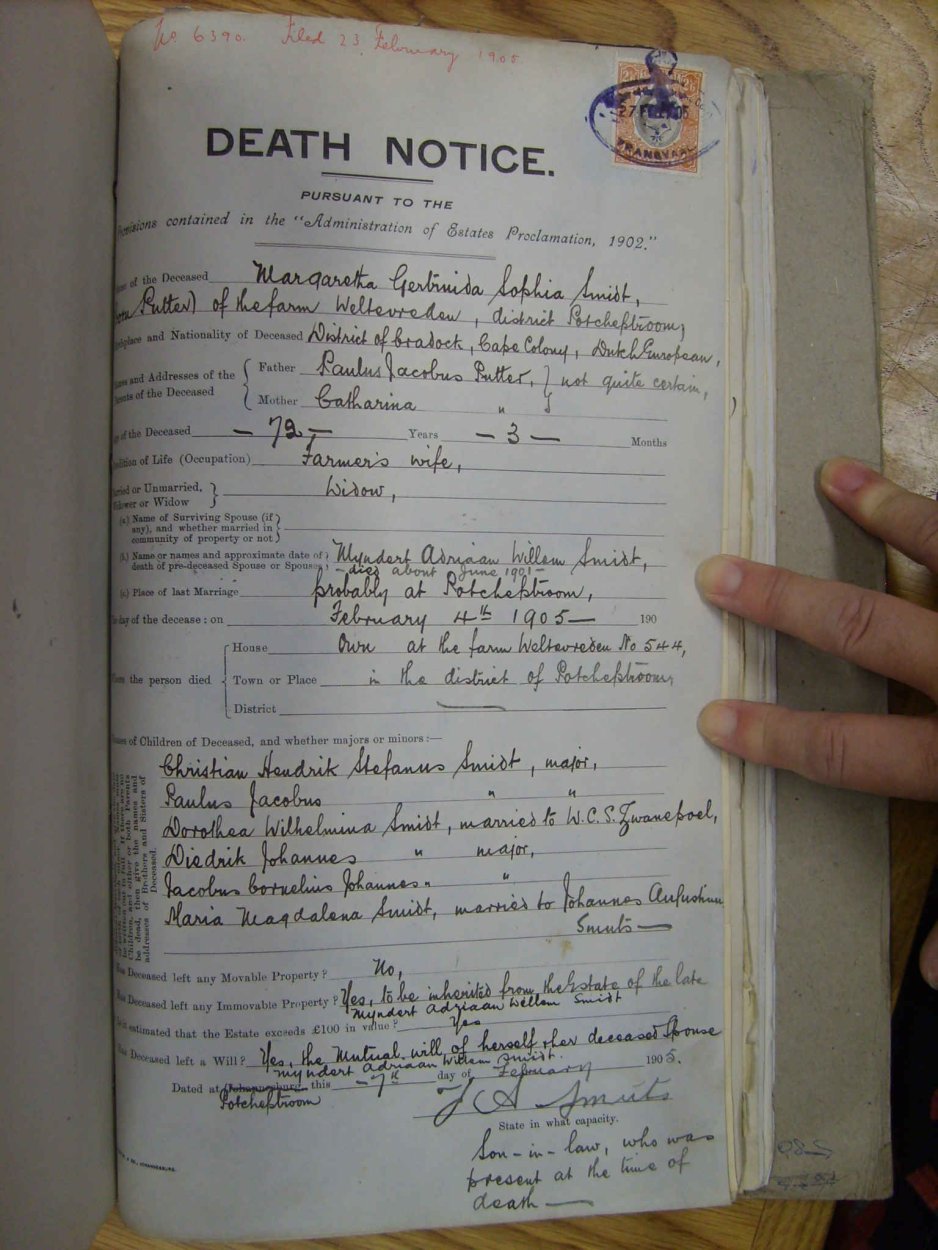 No 6390. Filed 23 February 1905
27 FEB 05
TRANSVAAL
DEATH NOTICE.
PURSUANT TO THE
Provisions contained in the "Administration of Estates Proclamation, 1902."
of the Deceased Margaretha Gertruida Sophia Smidt,
Putter) of the farm Weltevreden, district Potchefstroom,
and Nationality of Deceased District of Cradock, Cape Colony, Dutch European,
and Addresses of the
of the Deceased
Father Paulus Jacobus Putter, } not quite certain,
Mother Catharina "
of the Deceased — 72, — Years — 3 — Months
of Life (Occupation) Farmer's wife,
or Unmarried,
or Widow } Widow,
(a.) Name of Surviving Spouse (if
any), and whether married in
community of property or not
(b.) Name or names and approximate date of
death of pre-deceased Spouse or Spouses Myndert Adriaan Willem Smidt,
—died about June 1901—
(c.) Place of last Marriage probably at Potchefstroom,
day of the decease: on February 4th 1905— 190
the person died
House Own at the farm Weltevreden No 544,
Town or Place in the district of Potchefstroom,
District —
of Children of Deceased, and whether majors or minors:—
Christian Hendrik Stefanus Smidt, major,
Paulus Jacobus " "
Dorothea Wilhelmina Smidt, married to W.C.S. Zwanepoel,
Diedrik Johannes " major,
Jacobus Cornelius Johannes " "
Maria Magdalena Smidt, married to Johannes
Smuts—
Children, and either or both Parents
be dead, then give the names and
addresses of Brothers and Sisters of
Deceased.
Deceased left any Movable Property? No,
Deceased left any Immovable Property? Yes, to be inherited from the Estate of the late
Myndert Adriaan Willem Smidt
estimated that the Estate exceeds £100 in value? Yes
Deceased left a Will? Yes, the Mutual will of herself & her deceased Spouse
Myndert Adriaan Willem Smidt.
Dated at Johannesburg this — 7th day of February 1905.
Potchefstroom
J A Smuts
State in what capacity.
Son-in-law, who was
present at the time of
death —